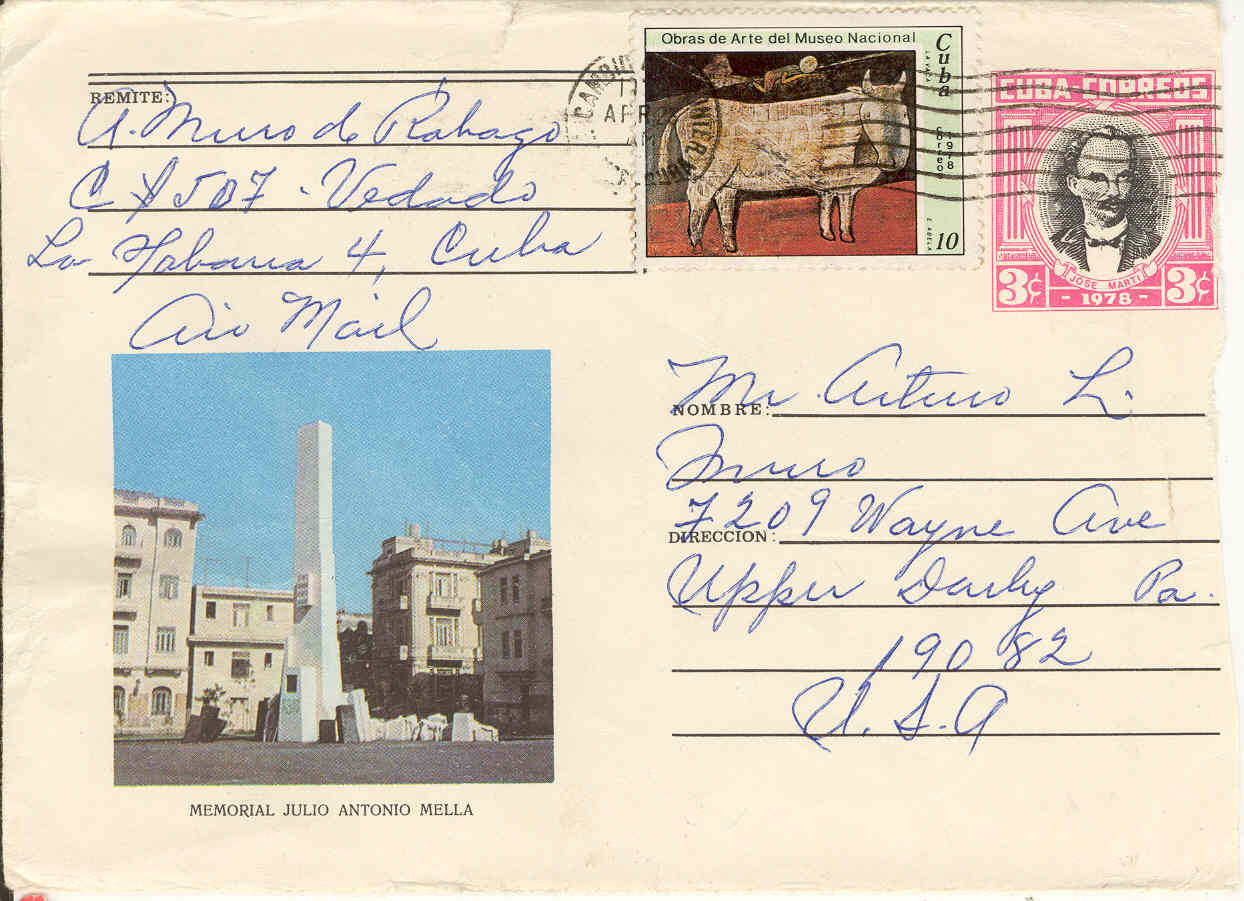 REMITE:
A. Muro de Rabago
C # 507 - Vedado
La Habana 4, Cuba
Air Mail
Obras de Arte del Museo Nacional
Cuba
LA VACA
Correo
1978
E. ABELA
10
APR
CUBA CORREOS
JOSE MARTI
3¢ - 1978 - 3¢
NOMBRE: Mr Arturo L.
Muro
DIRECCION: 7209 Wayne Ave
Upper Darby Pa.
19082
U.S.A
MEMORIAL JULIO ANTONIO MELLA